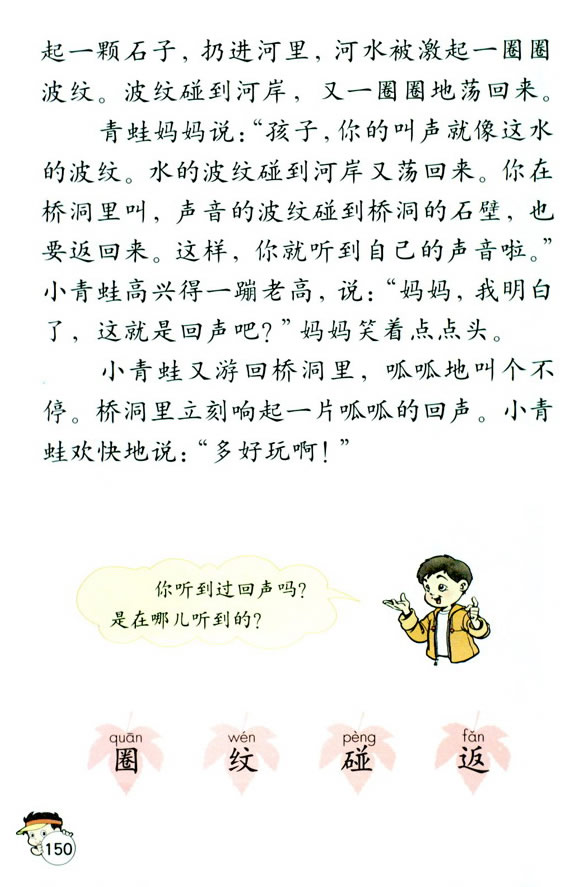 起一颗石子，扔进河里，河水被激起一圈圈
波纹。波纹碰到河岸，又一圈圈地荡回来。
青蛙妈妈说：“孩子，你的叫声就像这水
的波纹。水的波纹碰到河岸又荡回来。你在
桥洞里叫，声音的波纹碰到桥洞的石壁，也
要返回来。这样，你就听到自己的声音啦。”
小青蛙高兴得一蹦老高，说：“妈妈，我明白
了，这就是回声吧？”妈妈笑着点点头。
小青蛙又游回桥洞里，呱呱地叫个不
停。桥洞里立刻响起一片呱呱的回声。小青
蛙欢快地说：“多好玩啊！”
你听到过回声吗？
是在哪儿听到的？
quān wén pèng fǎn
圈 纹 碰 返
150